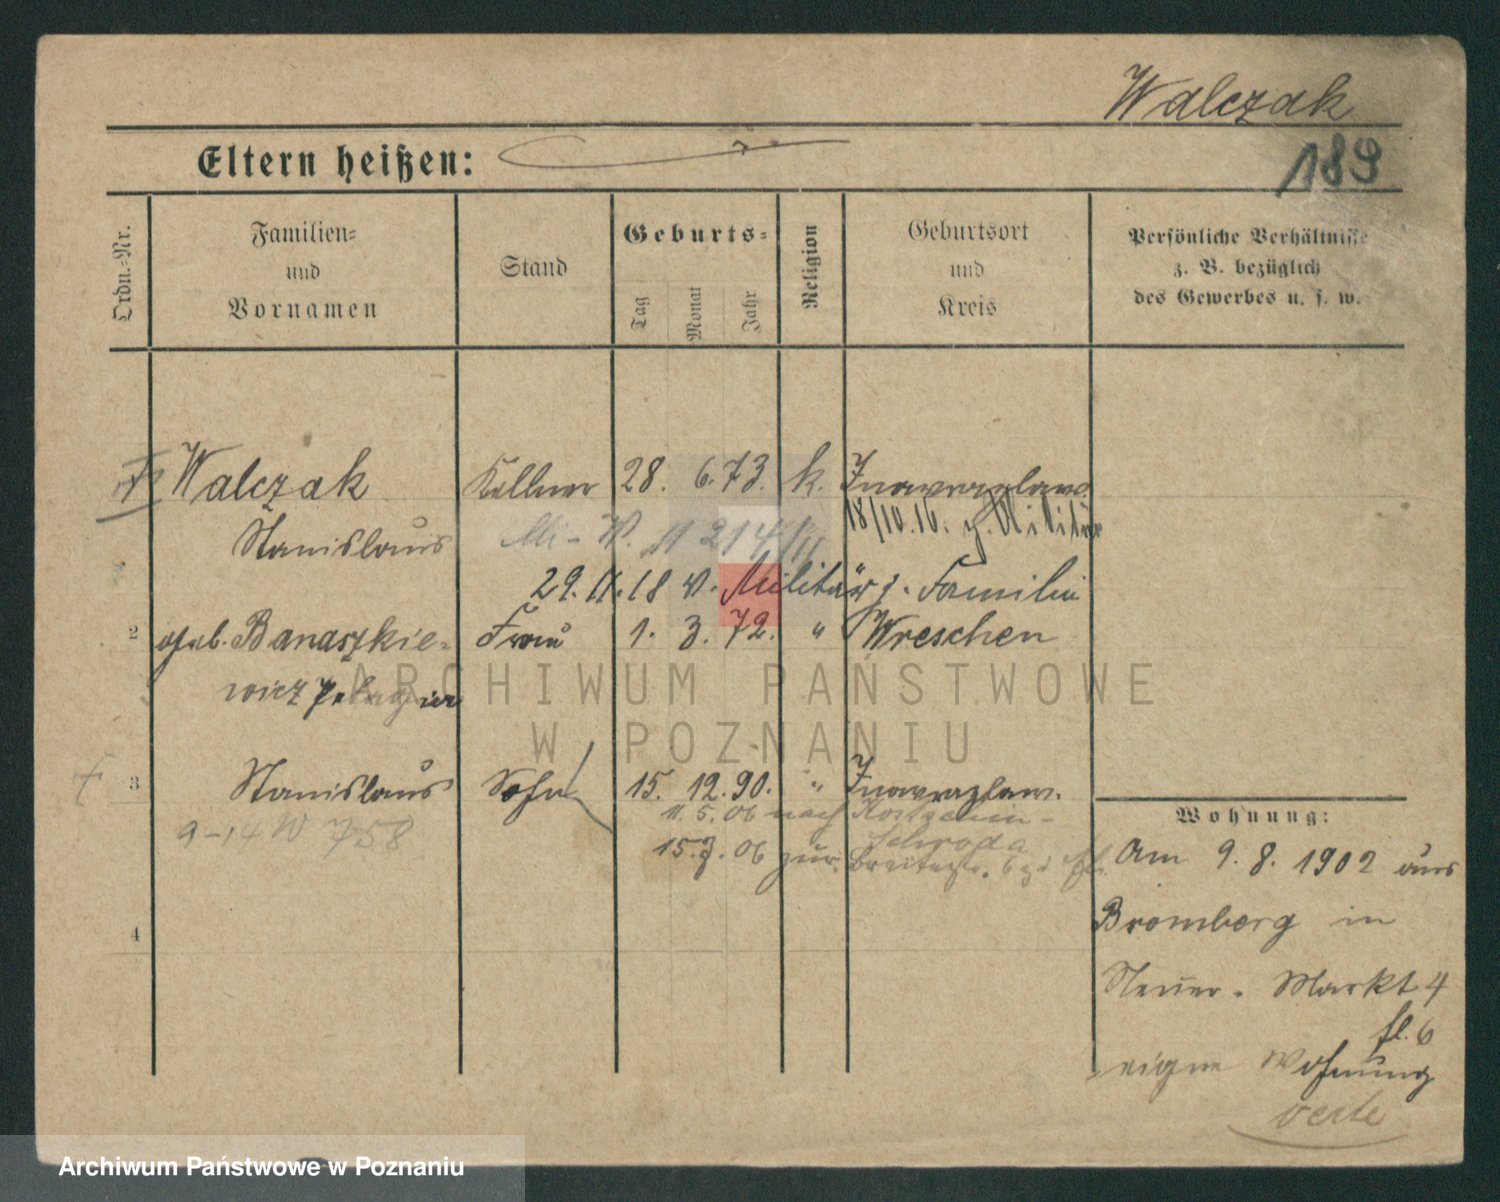 Walczak
Eltern heißen:
189
Ordn.-Nr.
Familien-
und
Vornamen
Stand
Geburts-
Tag
Monat
Jahr
Religion
Geburtsort
und
Kreis
Persönliche Verhältnisse
z. B. bezüglich
des Gewerbes u. s. w.
Walczak Kellner 28. 6. 73. k. Inowrazlaw.
18/10.16. z. Militär
Stanislaus
29. 11. 18 v. Militär z. Familie
2 geb. Banaszkie- Frau 1. 3. 72. " Wreschen
wicz Pelagia
3 Stanislaus Sohn 15. 12. 90. " Inowrazlaw.
11. 5. 06 nach Kostschin-
Schroda
15. 7. 06 zur. Breitestr.
4
Wohnung:
Am 9. 8. 1902 aus
Bromberg in
Neuer-Markt 4
fl. 6
eigne Wohnung
verte
ARCHIWUM PAŃSTWOWE
W POZNANIU
Archiwum Państwowe w Poznaniu